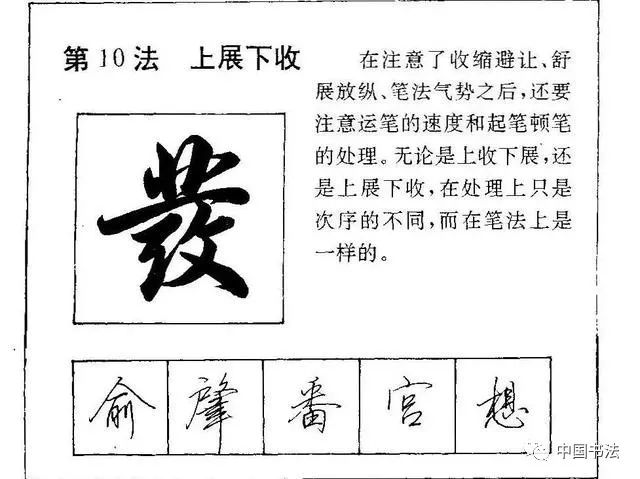 第10法 上展下收
在注意了收缩避让、舒
展放纵、笔法气势之后,还要
注意运笔的速度和起笔顿笔
的处理。无论是上收下展,还
是上展下收,在处理上只是
次序的不同,而在笔法上是
一样的。
發
俞 肇 番 宫 想
中国书法